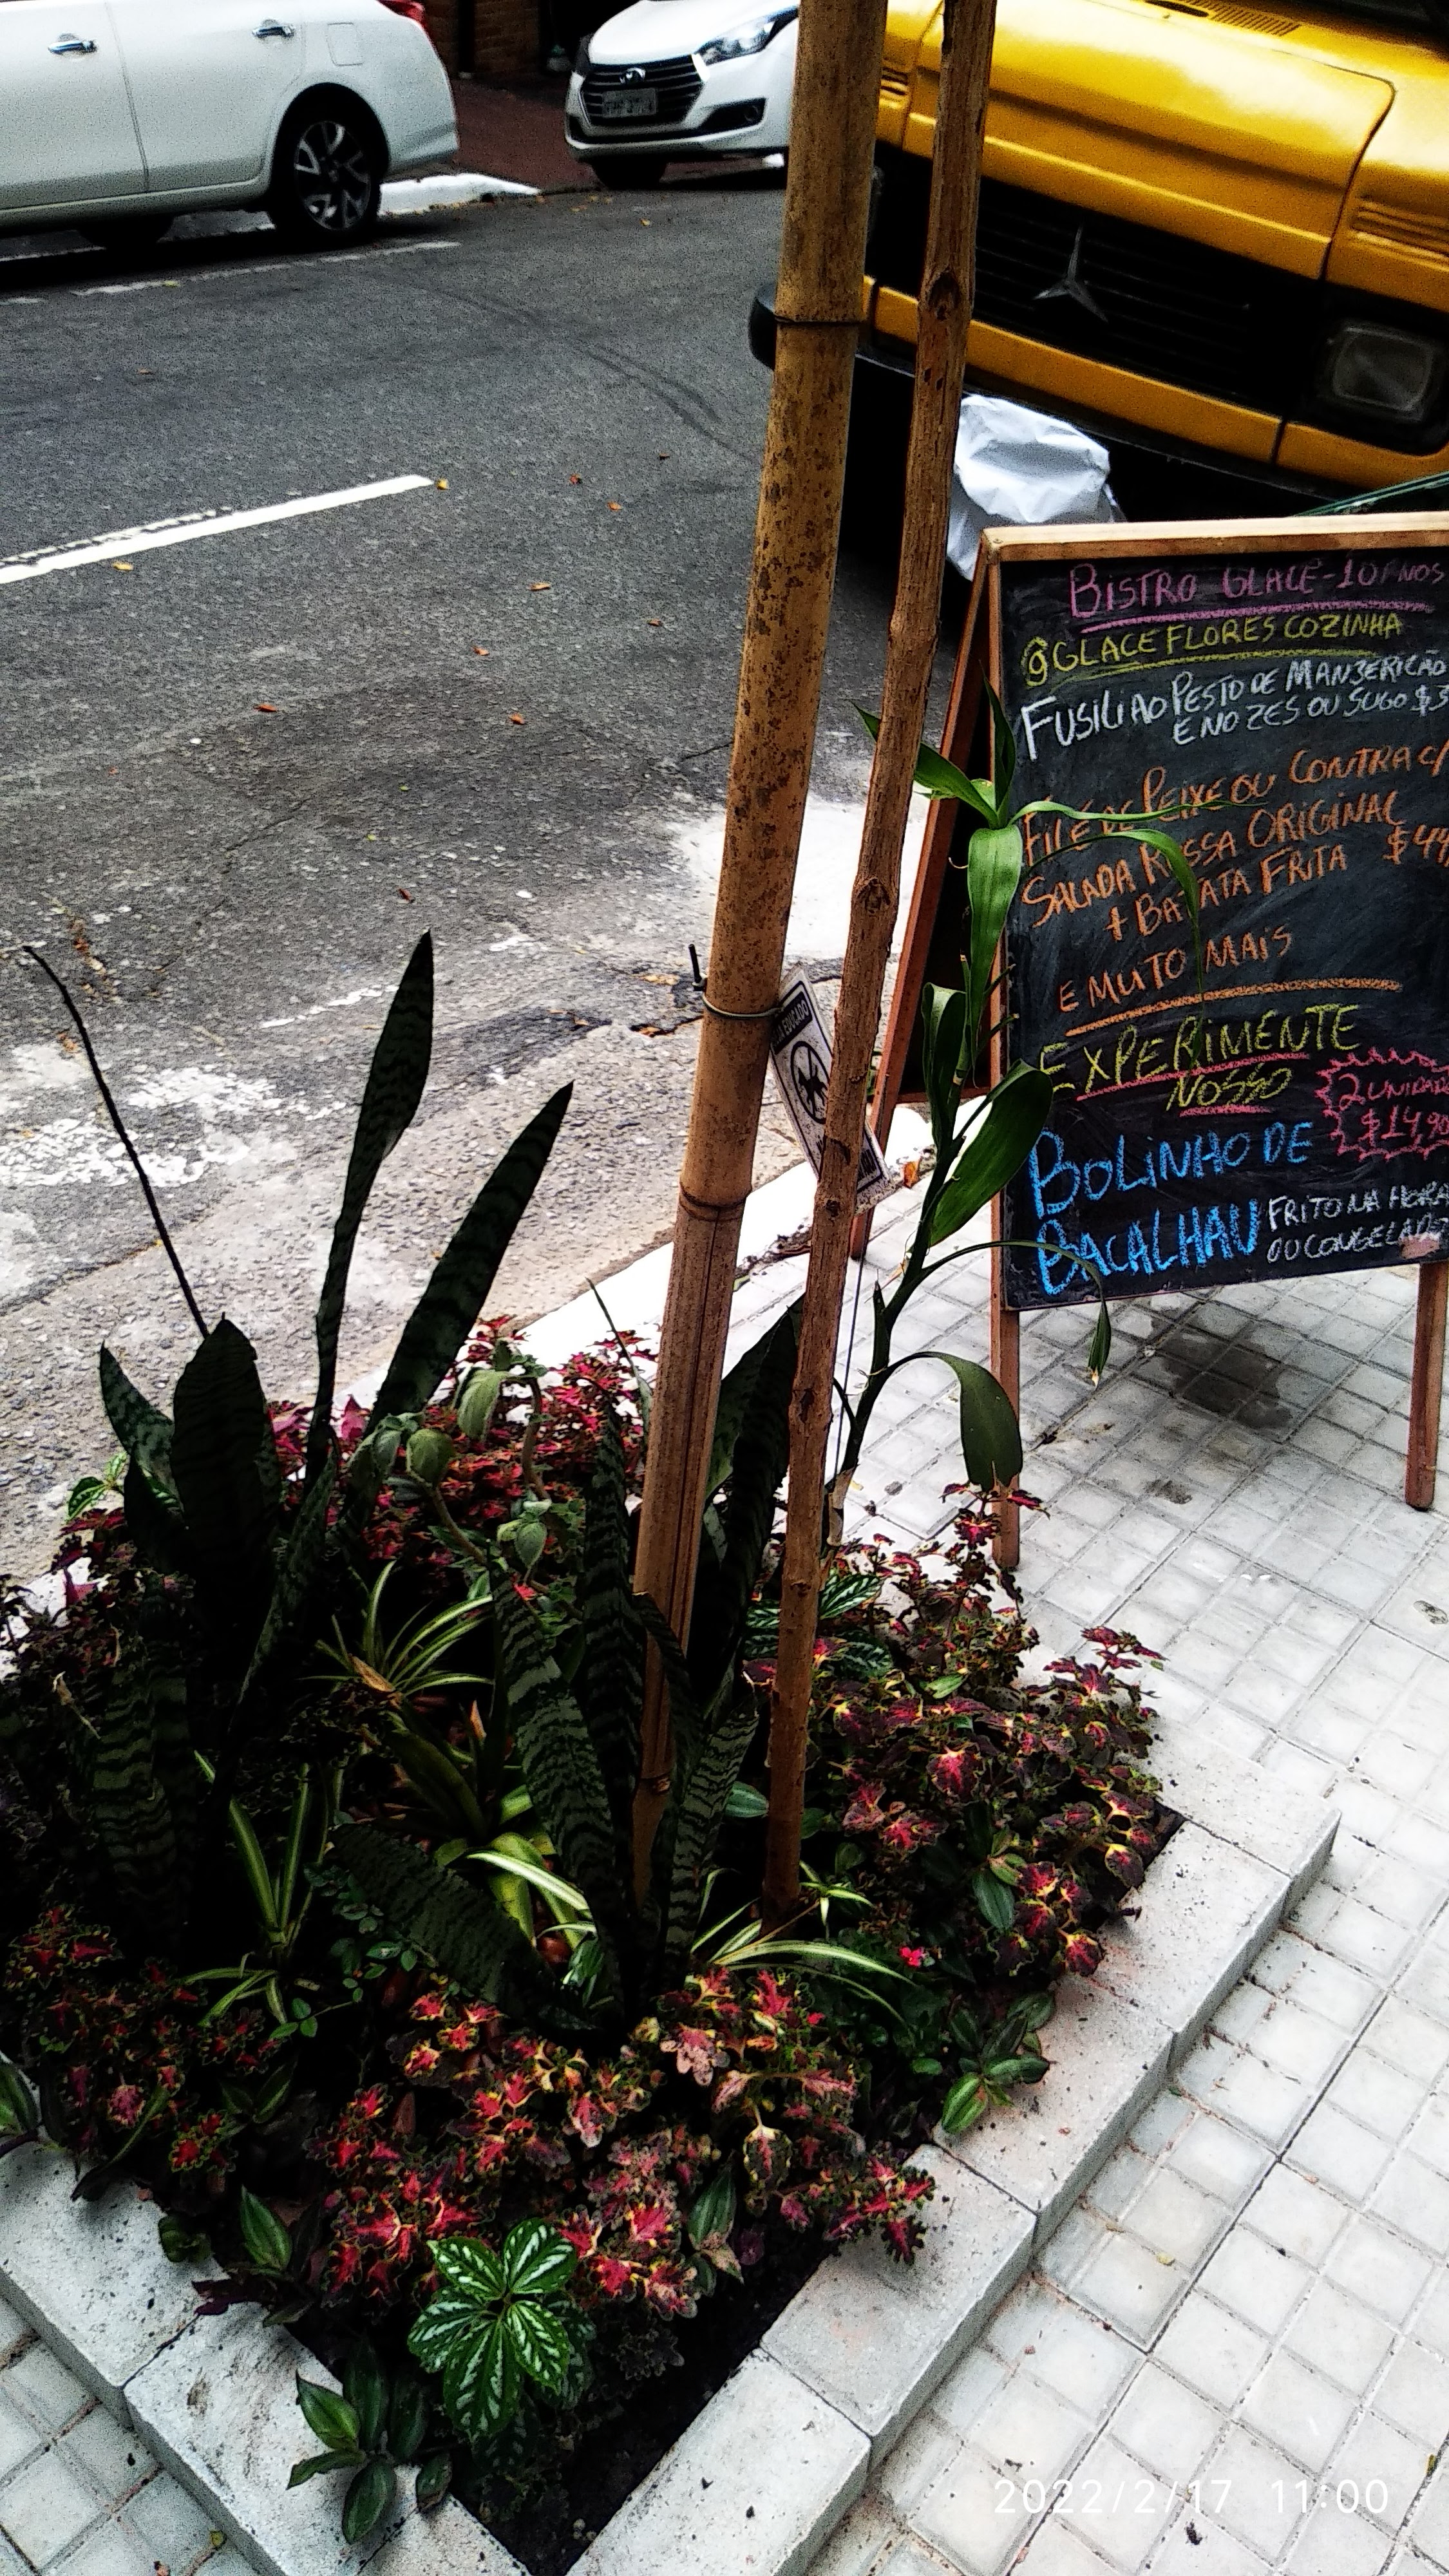 BISTRO GLACE - 10 ANOS
@GLACEFLORESCOZINHA
FUSILI AO PESTO DE MANJERICÃO
E NOZES OU SUGO $3
FILÉ DE PEIXE OU CONTRA C/
SALADA RUSSA ORIGINAL
+ BATATA FRITA $44
E MUTO MAIS
EXPERIMENTE
NOSSO
2 UNIDAD
$14,90
BOLINHO DE
BACALHAU
FRITO NA HORA
OU CONGELADO
EDUCADO
2022/2/17 11:00